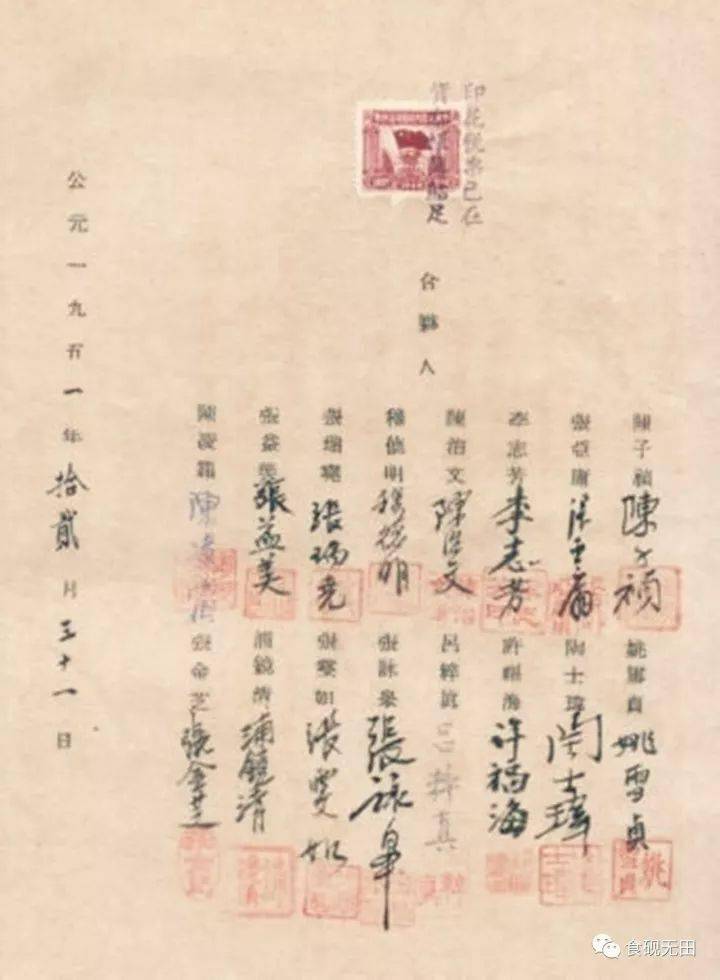 印花稅票已在
貼足
合夥人
陳子禎 陳子禎
張亞庸
李志芳 李志芳
陳治文 陳治文
張瑞堯 張瑞堯
張益美 張益美
陳凌霜
姚雪貞 姚雪貞
士瑋 士瑋
許福海 许福海
呂梓真 呂梓真
張詠皋 張詠皋
張雯如 張雯如
浦鏡清 浦鏡清
張金芝 張金芝
公元一九五一年拾貳月三十一日
食砚无田